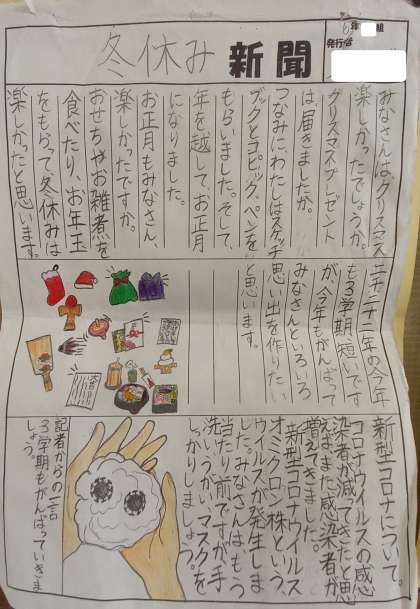 冬休み新聞
年 組
発行者
みなさんは、クリスマス
楽しかったでしょうか。
クリスマスプレゼント
は、届きましたか。
つなみに、わたしはスケッチ
ブックとコピックペンを
もらいました。そして、
年を越して、お正月
になりました。
お正月もみなさん、
楽しかったですか。
おせちやお雑煮を
食べたり、お年玉
をもらって冬休みは
楽しかったと思います。
二千二十二年の今年
も3学期、短いです
が、今年もがんばって
みなさんといろいろ
思い出を作りたい
と思います。
新型コロナについて。
コロナウイルスの感
染者が減ってきたと思
えばまた感染者が
増えてきました。
新型コロナウイルス
オミクロン株という
ウイルスが発生しま
した。みなさんはもう
当たり前ですが、手
洗いうがいマスクを
しっかりしましょう。
記者からの一言
3学期もがんばっていきま
しょう。